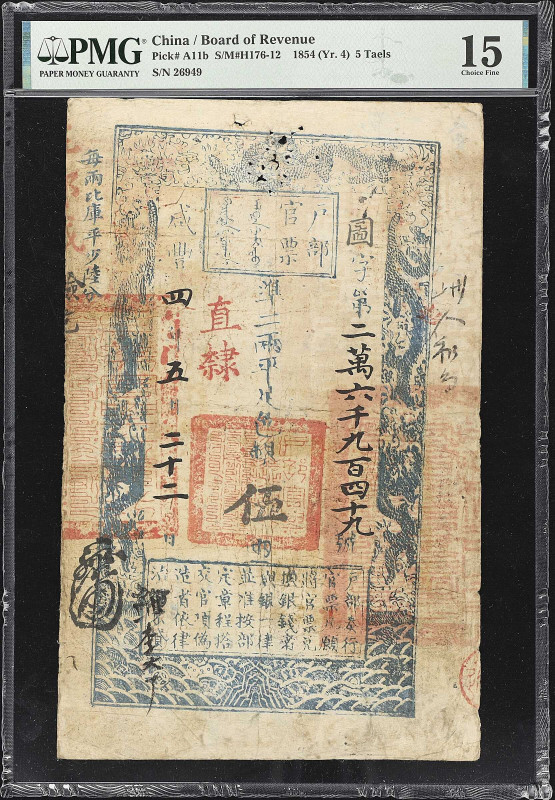 PMG
PAPER MONEY GUARANTY
China / Board of Revenue
Pick# A11b S/M#H176-12 1854 (Yr. 4) 5 Taels
S/N 26949
15
Choice Fine
戶部
官票
圖字第二萬六千九百四十九號
準二兩平足色銀伍兩
直隸
咸豐四年五月二十二日
每兩比庫平少陸分
戶部奏行
官票凡願
將官票兌
換銀錢者
與銀一律
並准按部
定章程搭
交官項偽
造者依律